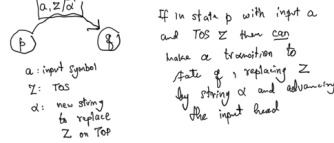 a, Z/α
p
q
a: input symbol
Z: TOS
α: new string
to replace
Z on TOP
If in state p with input a
and TOS Z then can
make a transition to
state q, replacing Z
by string α and advancing
the input head